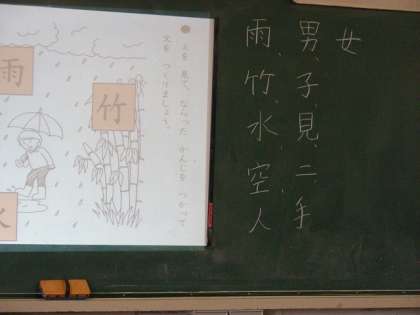 女
男、子、見、二、手
雨、竹、水、空、人
えを 見て、ならった かんじを つかって
文を つくりましょう。
竹
雨
水